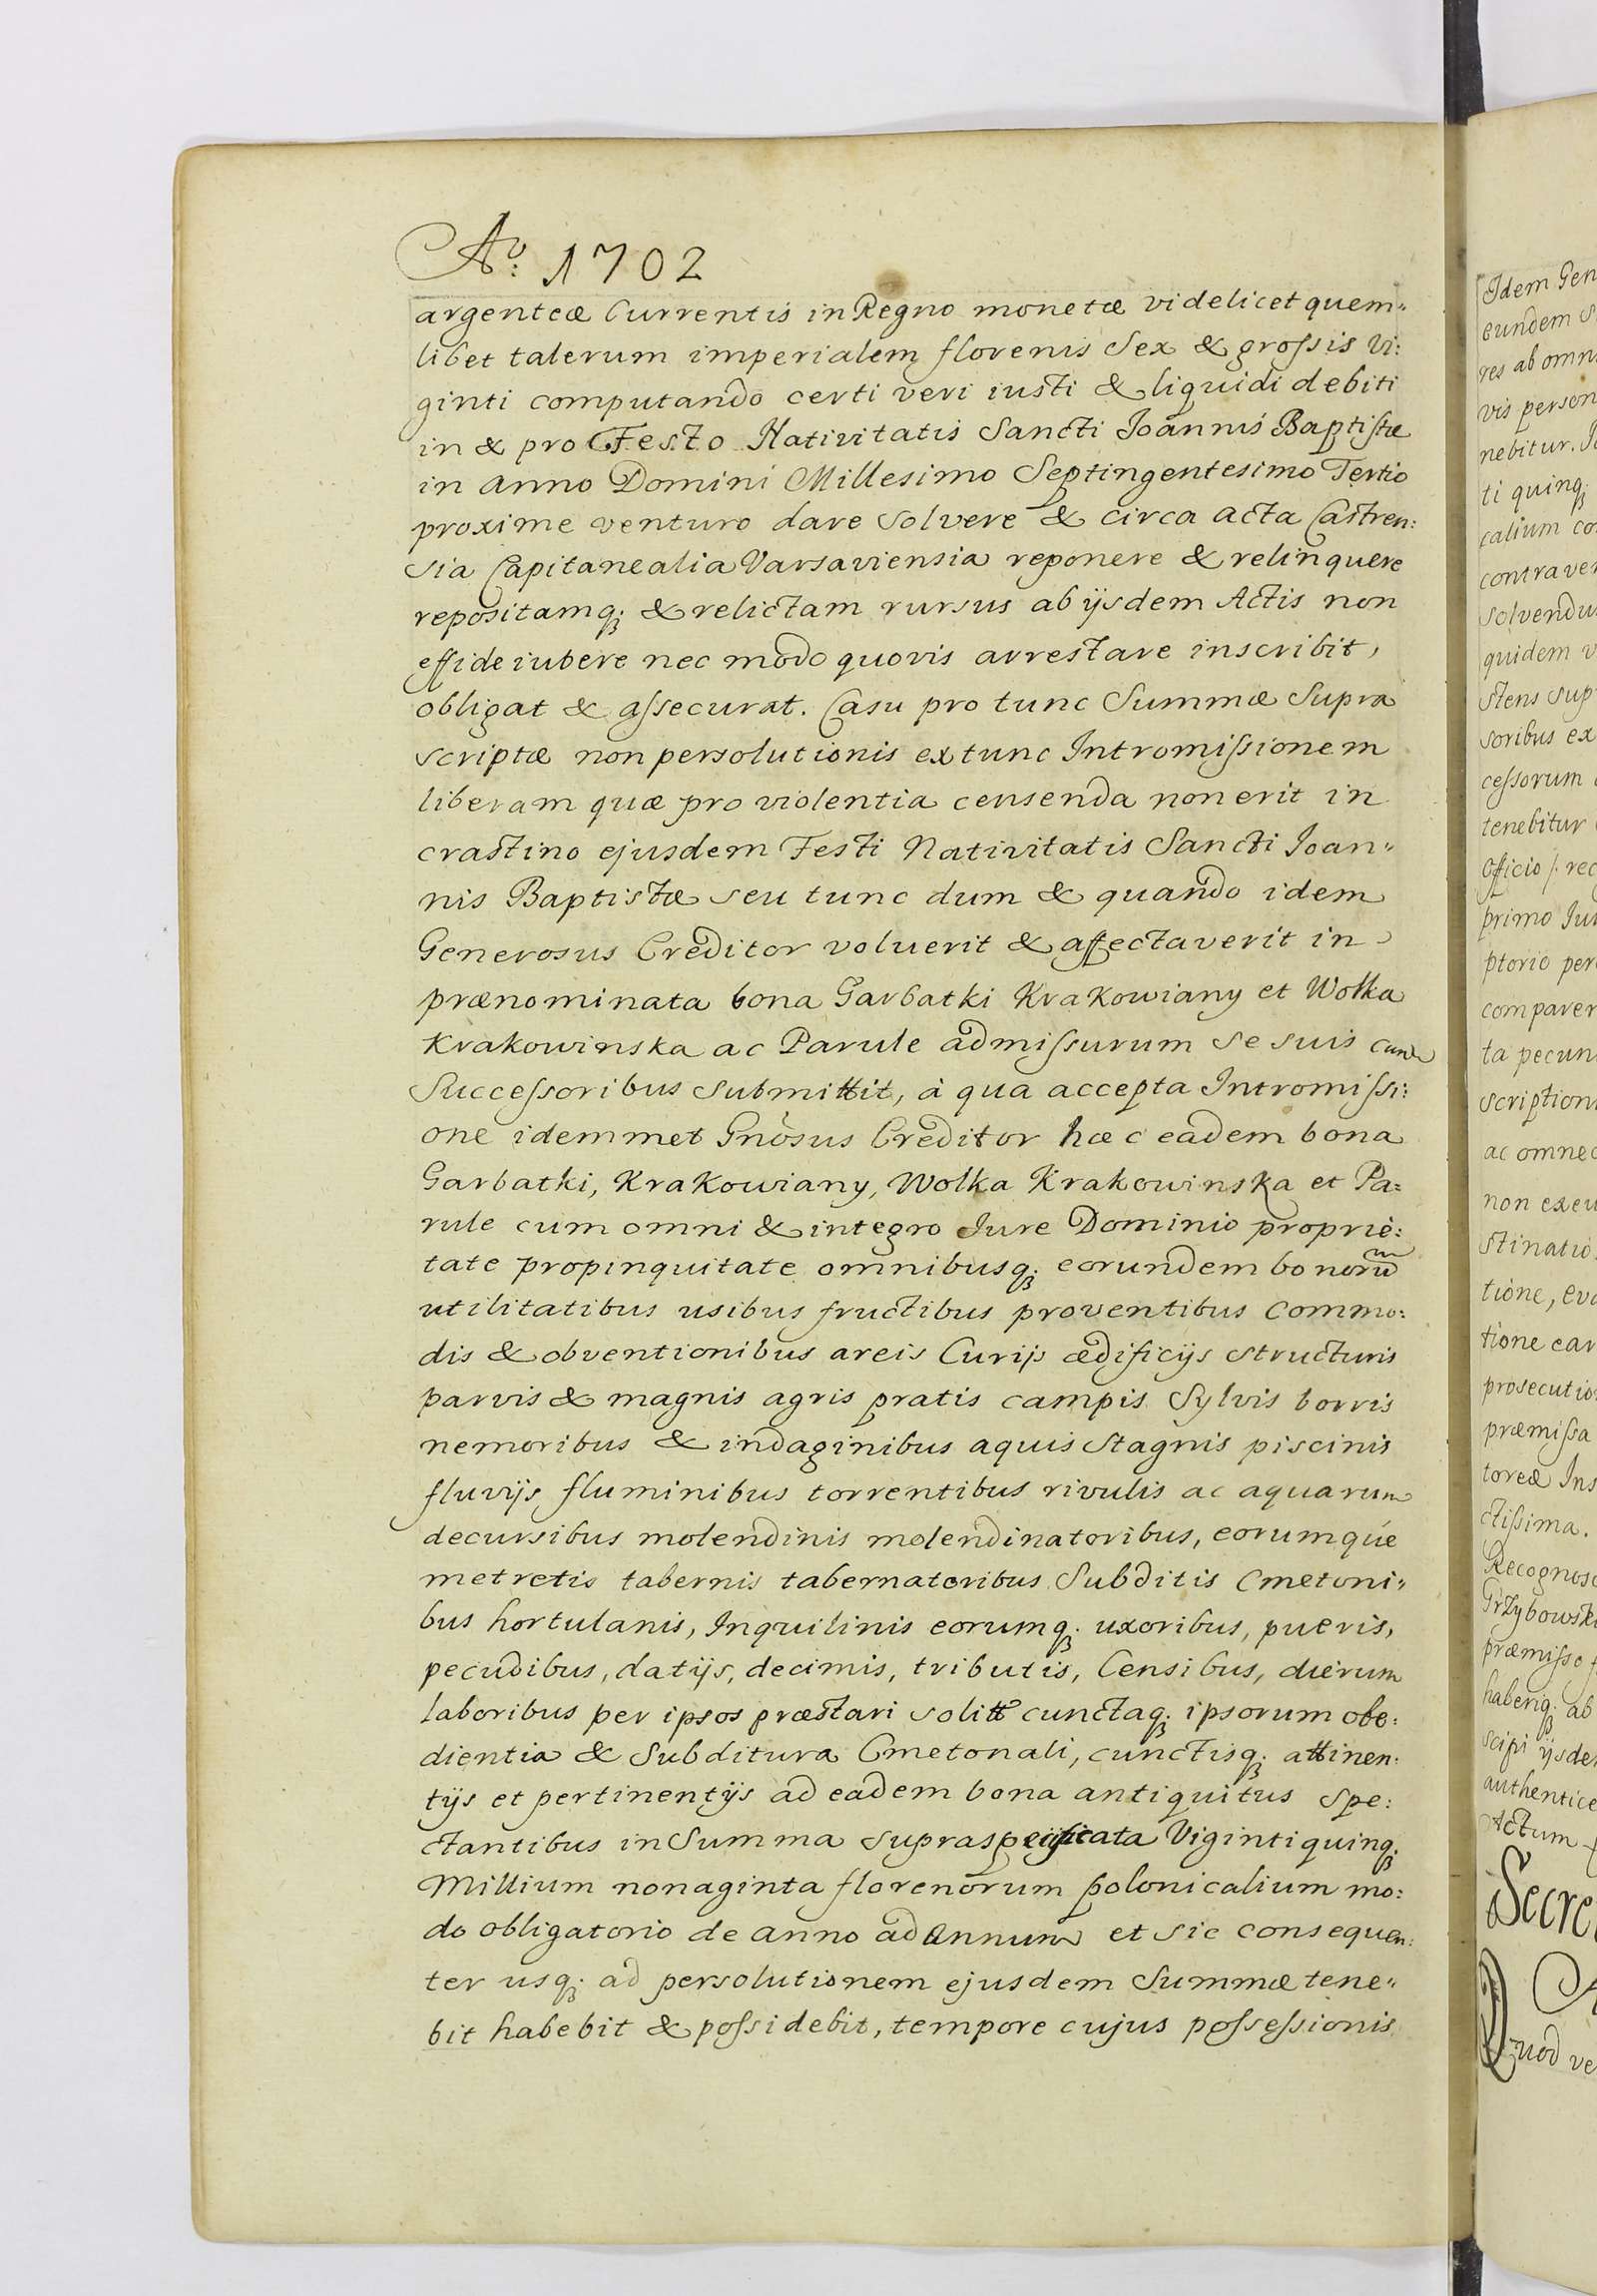 Aº: 1702
argenteæ Currentis in Regno monetæ videlicet quem„
libet talerum imperialem florenis Sex & grossis Vi:
ginti computando certi veri iusti & liquidi debiti
in & pro Festo Nativitatis Sancti Joannis Baptistæ
in Anno Domini Millesimo Septingentesimo Tertio
proxime venturo dare solvere & circa acta Castren:
sia Capitanealia Varsaviensia reponere & relinquere
repositamq; & relictam rursus ab ijsdem Actis non
effideiubere nec modo quovis arrestare inscribit,
obligat & assecurat. Casu pro tunc Summæ Supra
scriptæ non persolutionis ex tunc Intromissionem
liberam quæ pro violentia censenda non erit in
crastino ejusdem Festi Nativitatis Sancti Joan„
nis Baptistæ seu tunc dum & quando idem
Generosus Creditor voluerit & affectaverit in
prænominata bona Garbatki Krakowiany et Wolka
Krakowinska ac Parule admissurum se suis cum
Successoribus submittit, à qua accepta Intromissi:
one idemmet Gnòsus Creditor hæc eadem bona
Garbatki, Krakowiany, Wolka Krakowinska et Pa:
rule cum omni & integro Jure Dominio proprie:
tate propinquitate omnibusq; eorundem bonorum
utilitatibus usibus fructibus proventibus commo:
dis & obventionibus areis Curijs ædificijs structuris
parvis & magnis agris pratis campis Sylvis borris
nemoribus & indaginibus aquis stagnis piscinis
fluvijs fluminibus torrentibus rivulis ac aquarum
decursibus molendinis molendinatoribus, eorumque
metretis tabernis tabernatoribus Subditis Cmetoni„
bus hortulanis, Inquilinis eorumq; uxoribus, pueris,
pecudibus, datijs, decimis, tributis, Censibus, dierum
laboribus per ipsos præstari solitt cunctaq; ipsorum obe:
dientia & Subditura Cmetonali, cunctisq; attinen:
tijs et pertinentijs ad eadem bona antiquitus spe:
ctantibus in Summa supraspecificata Viginti quinq;
Millium nonaginta florenorum polonicalium mo:
do obligatorio de anno ad Annum et sic consequen:
ter usq; ad persolutionem ejusdem Summæ tene„
bit habebit & possidebit, tempore cujus possessionis
Idem Gen
eundem S
res ab omn
vis person
nebitur. 
ti quinq;
calium co
contraven
solvendu
quidem v
stens sup
soribus ex
cessorum
tenebitur
Officio /: rec
primo Iu
ptorio per
comparer
ta pecun
scription
ac omne
non exeu
stinatio
tione, eva
tione ear
prosecutio
præmissa
toreæ Ins
ctissima.
Recognosc
Grzybowsk
præmisso
haberiq; ab
scipi ijsde
authentice
Actum
Secre
A
Quod ve